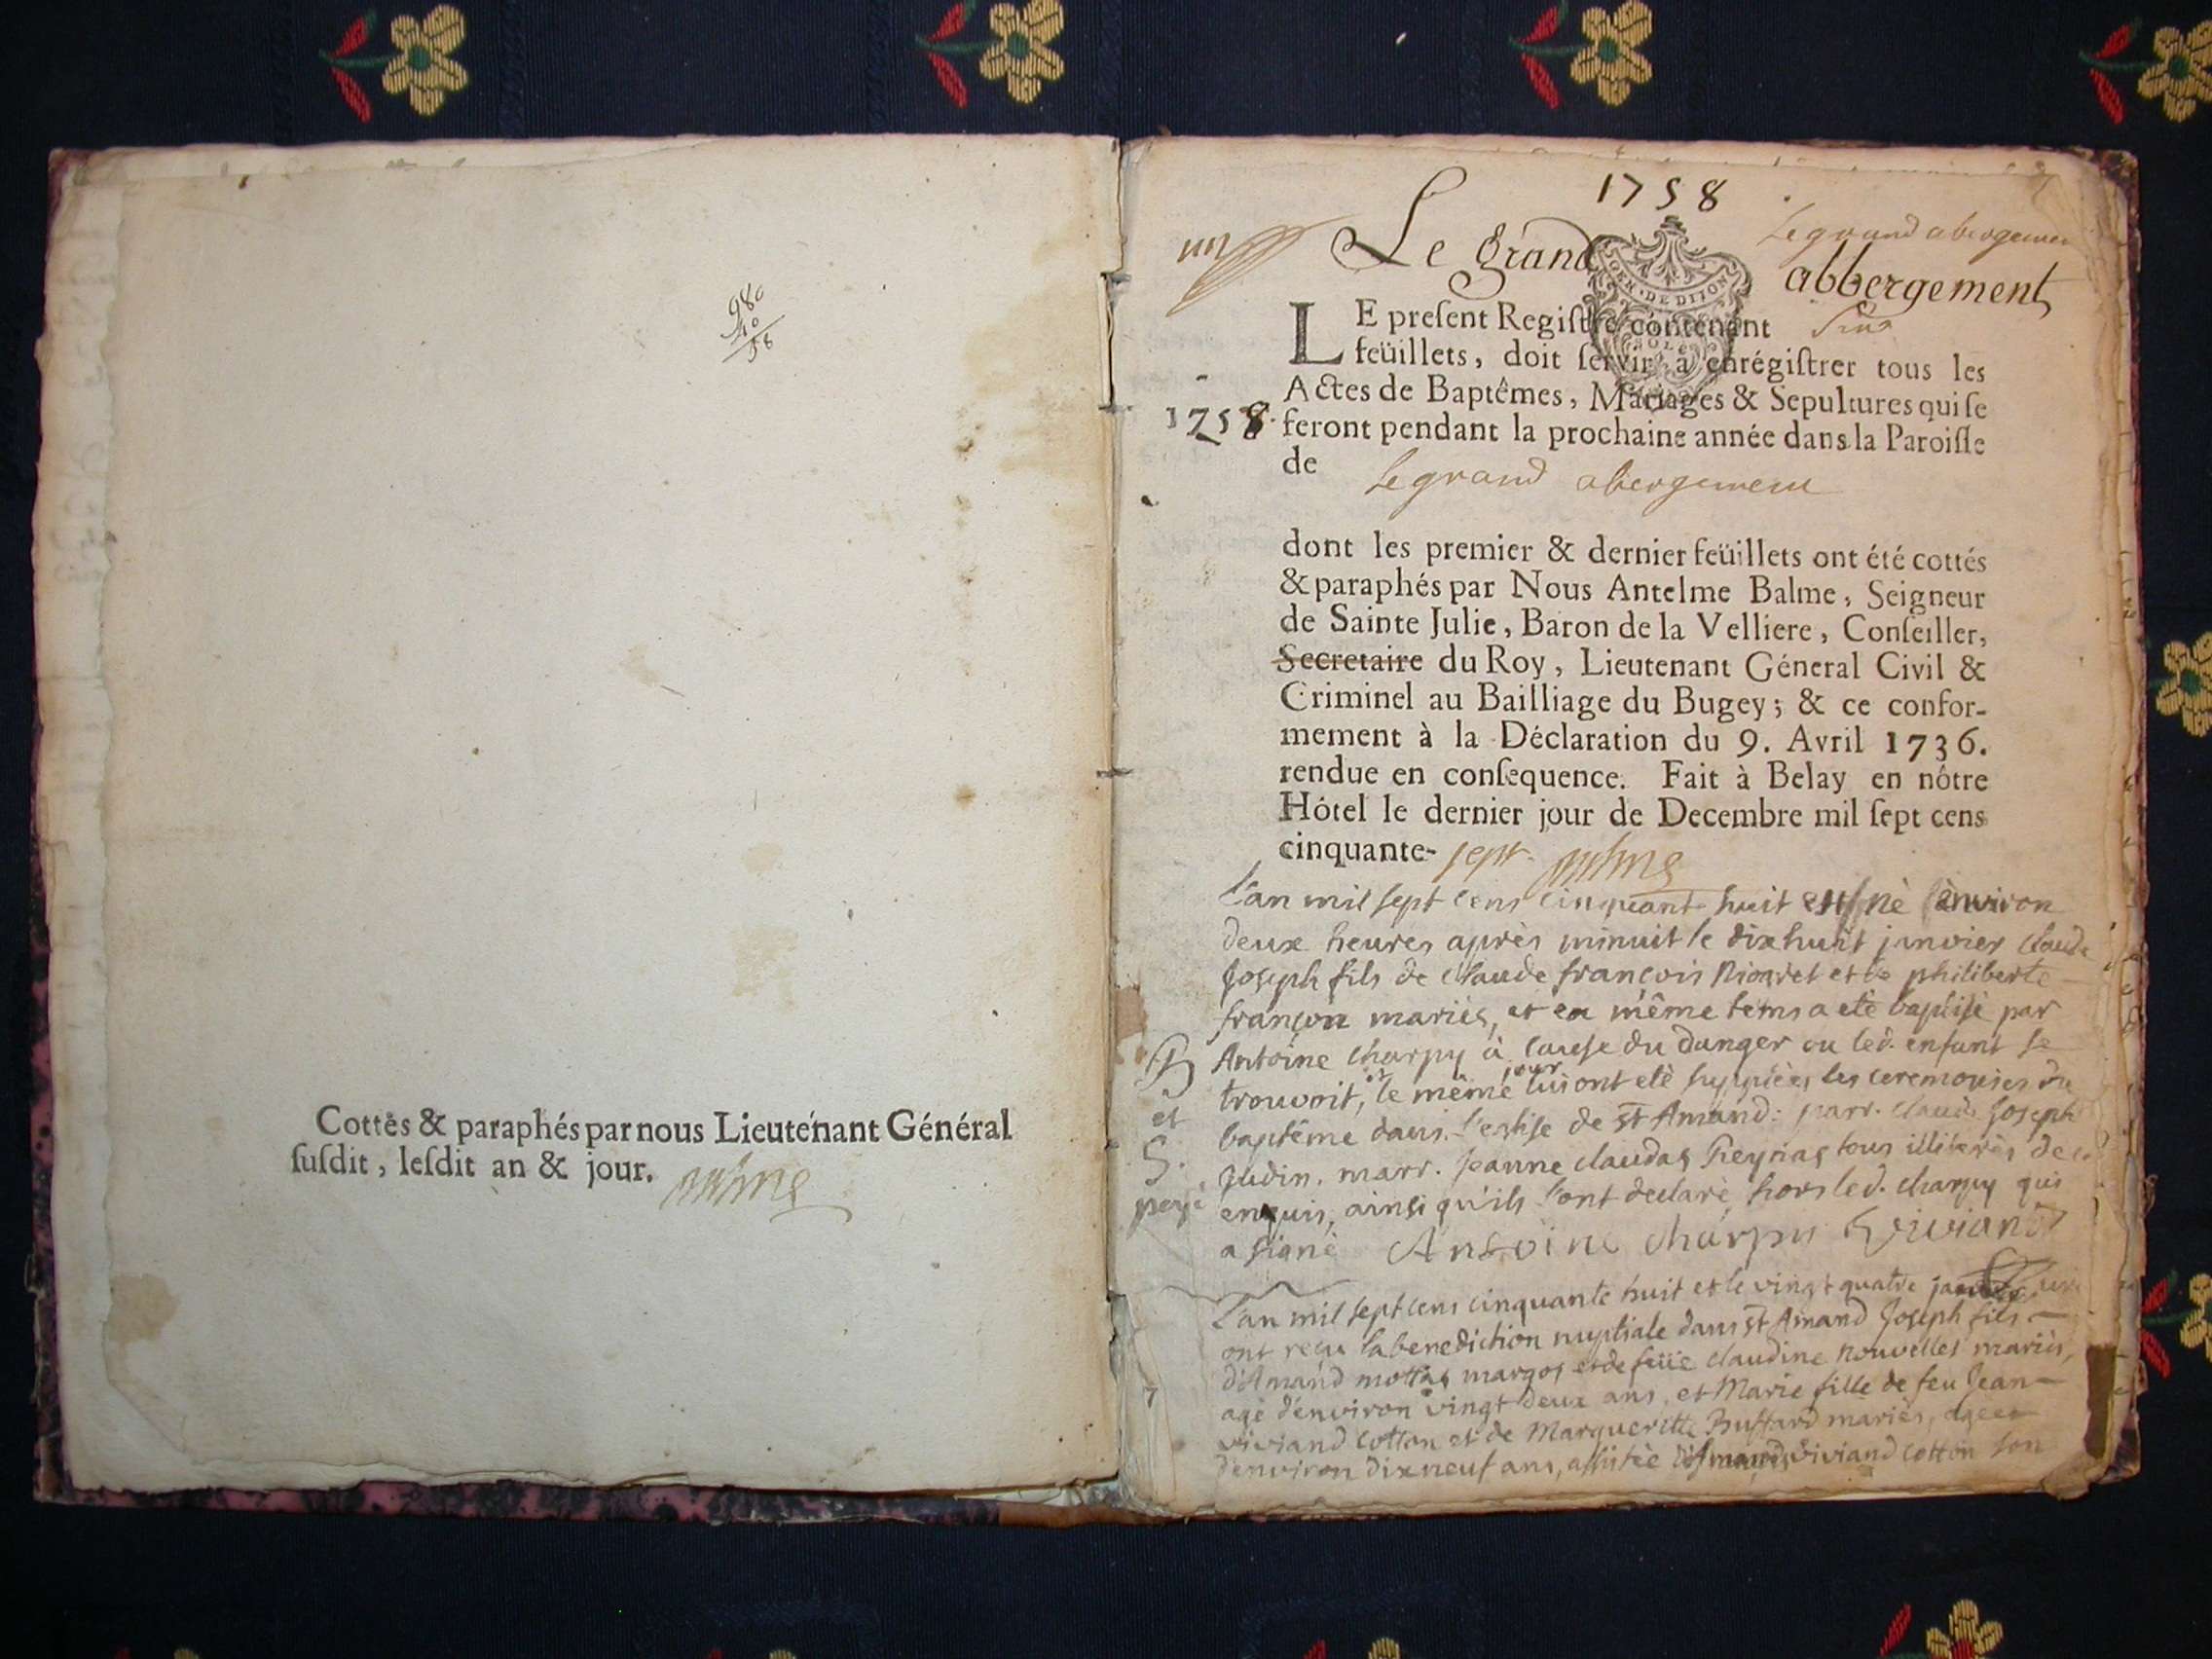 980
40
58
Cottés & paraphés par nous Lieutenant Général
ſuſdit, leſdit an & jour.
1758
un
Le grand abbergement
Le grand abergement
GEN. DE DIJON
LE preſent Regiſtre contenant
feüillets, doit ſervir à enrégiſtrer tous les
Actes de Baptêmes, Mariages & Sepultures qui ſe
1758 feront pendant la prochaine année dans la Paroiſſe
de Le grand abergement
dont les premier & dernier feüillets ont été cottés
& paraphés par Nous Antelme Balme, Seigneur
de Sainte Julie, Baron de la Velliere, Conſeiller,
Secretaire du Roy, Lieutenant Géneral Civil &
Criminel au Bailliage du Bugey; & ce confor-
mement à la Déclaration du 9. Avril 1736.
rendue en conſequence. Fait à Belay en nôtre
Hôtel le dernier jour de Decembre mil ſept cens
cinquante- sept
L'an mil sept cens cinquante huit est né environ
deux heures après minuit le dixhuit janvier claude
Joseph fils de claude françois et de philiberte
françon mariés, et en même tems a eté baptisé par
Antoine Charpy à cause du danger ou led. enfant se
trouvoit, et le même jour lui ont eté supplées les ceremonies du
et baptême dans l'eglise de St Amand: parr. claude Joseph
S. Judin. marr. Jeanne claudas tous illiterés de ce
enquis, ainsi qu'ils l'ont declaré, hors led. charpy qui
a signé Antoine Charpy Viviand
L'an mil sept cens cinquante huit et le vingt quatre janvier
ont reçu la benediction nuptiale dans St Amand Joseph fils
d'Amand margos et de feüe claudine nouvelles mariés,
agé d'environ vingt deux ans, et Marie fille de feu Jean
viviand cotton et de Marguerite Buffard mariés, agée
d'environ dixneuf ans, assistée d'Amand viviand cotton son